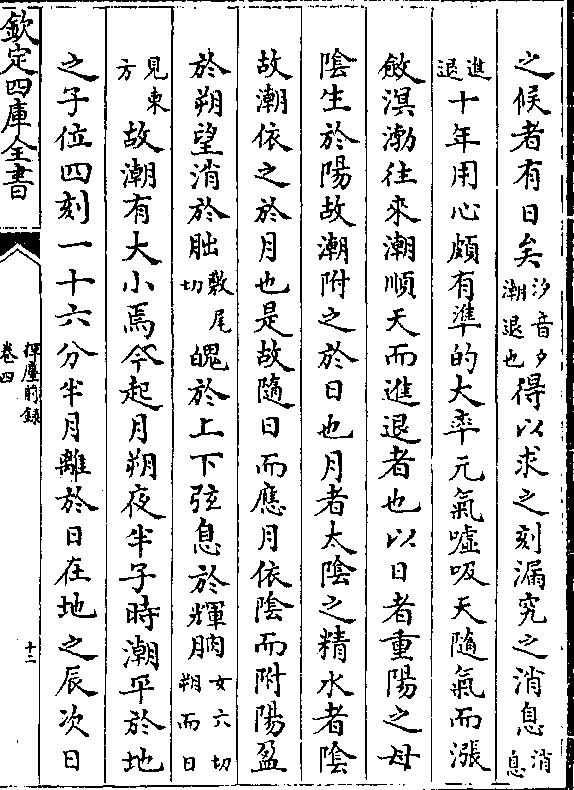 之候者有日矣汐音夕潮退也得以求之刻漏究之消息消息
進退十年用心頗有準的大率元氣噓吸天隨氣而漲
斂溟渤往來潮順天而進退者也以日者重陽之母
陰生於陽故潮附之於日也月者太陰之精水者陰
故潮依之於月也是故隨日而應月依陰而附陽盈
於朔望消於朏敷尾切魄於上下弦息於輝朒女六切朔而日
見東方故潮有大小焉今起月朔夜半子時潮平於地
之子位四刻一十六分半月離於日在地之辰次日
欽定四庫全書
揮麈前録
卷四
十二